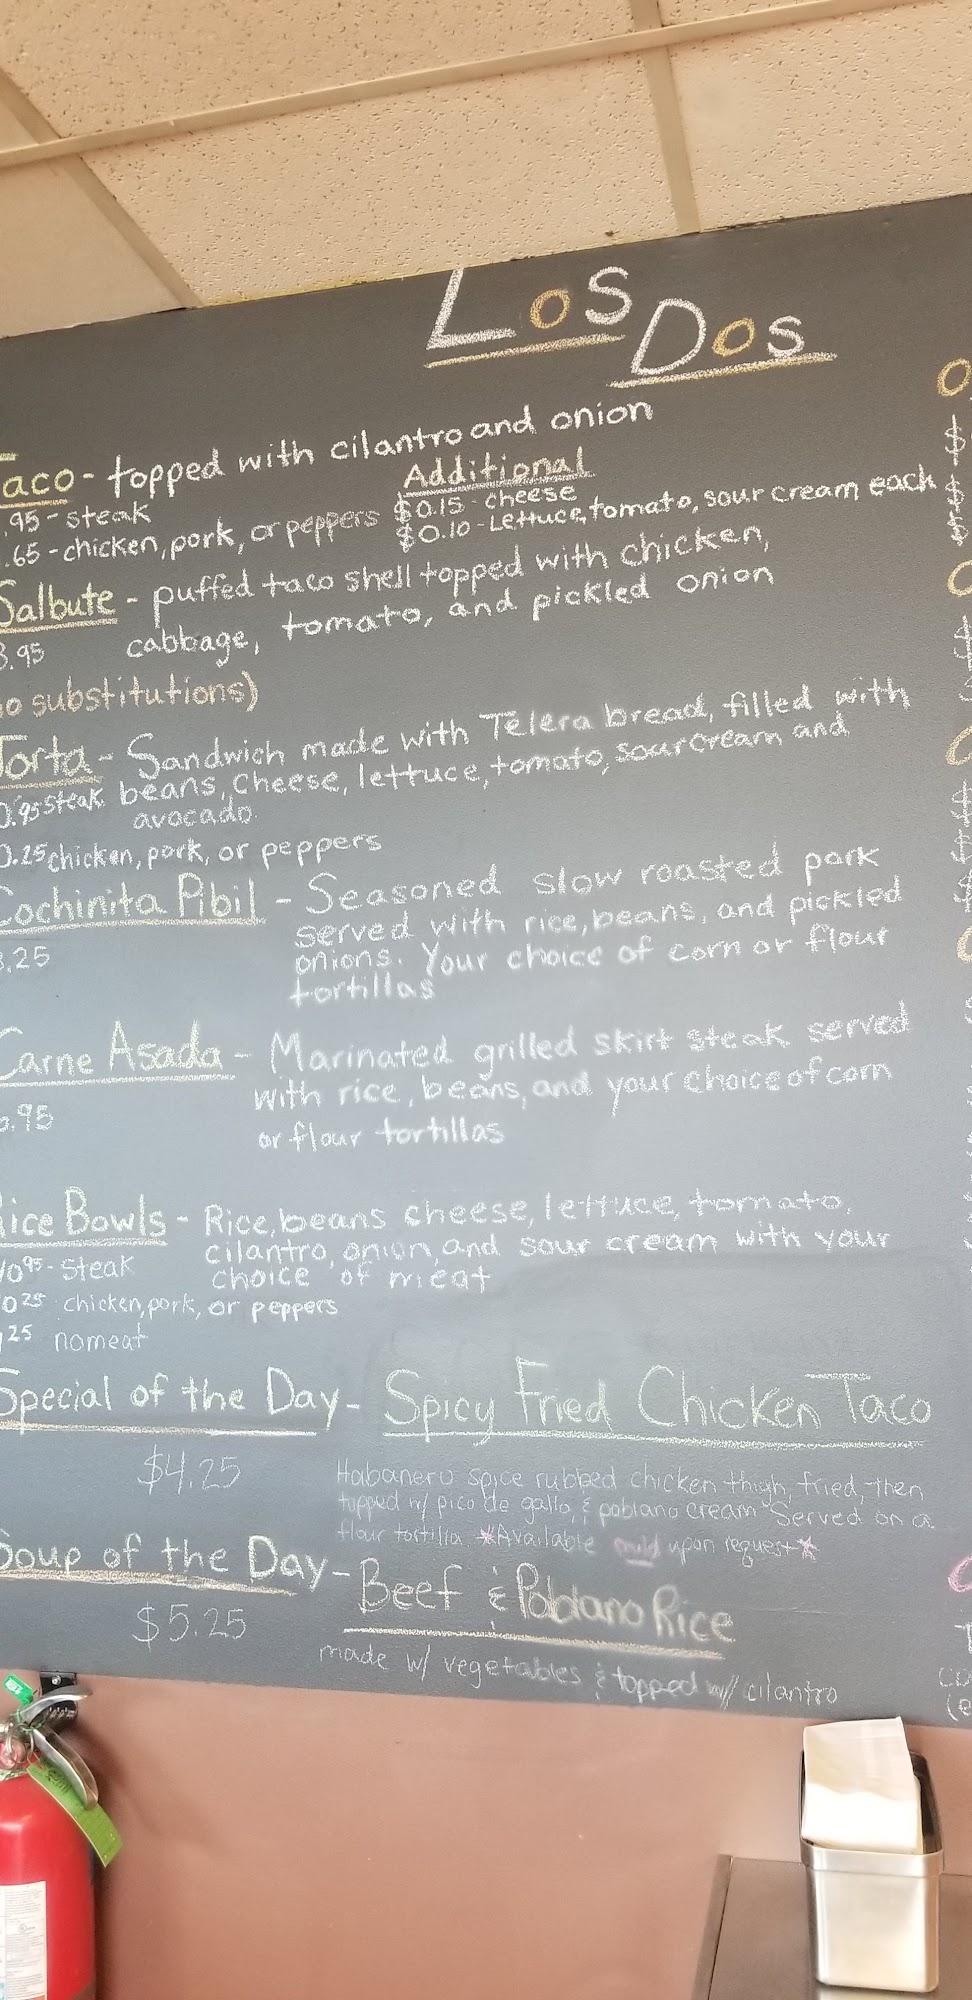 Los Dos
Taco - topped with cilantro and onion
.95 - steak
.65 - chicken, pork, or peppers
Additional
$0.15 - cheese
$0.10 - Lettuce, tomato, sour cream each
Salbute - puffed taco shell topped with chicken,
cabbage, tomato, and pickled onion
3.95
o substitutions)
Torta - Sandwich made with Telera bread, filled with
0.95 steak beans, cheese, lettuce, tomato, sour cream and
avocado.
0.25 chicken, pork, or peppers
Cochinita Pibil - Seasoned slow roasted pork
served with rice, beans, and pickled
.25 onions. Your choice of corn or flour
tortillas
Carne Asada - Marinated grilled skirt steak served
with rice, beans, and your choice of corn
.95
or flour tortillas
Rice Bowls - Rice, beans cheese, lettuce, tomato,
cilantro, onion, and sour cream with your
10 95 - Steak choice of meat
0 25 chicken, pork, or peppers
25 no meat
Special of the Day - Spicy Fried Chicken Taco
$4.25
Habanero spice rubbed chicken thigh, fried, then
topped w/ pico de gallo, & poblano cream Served on a
flour tortilla. *Available mild upon request*
Soup of the Day - Beef & Poblano Rice
$5.25
made w/ vegetables & topped w/ cilantro